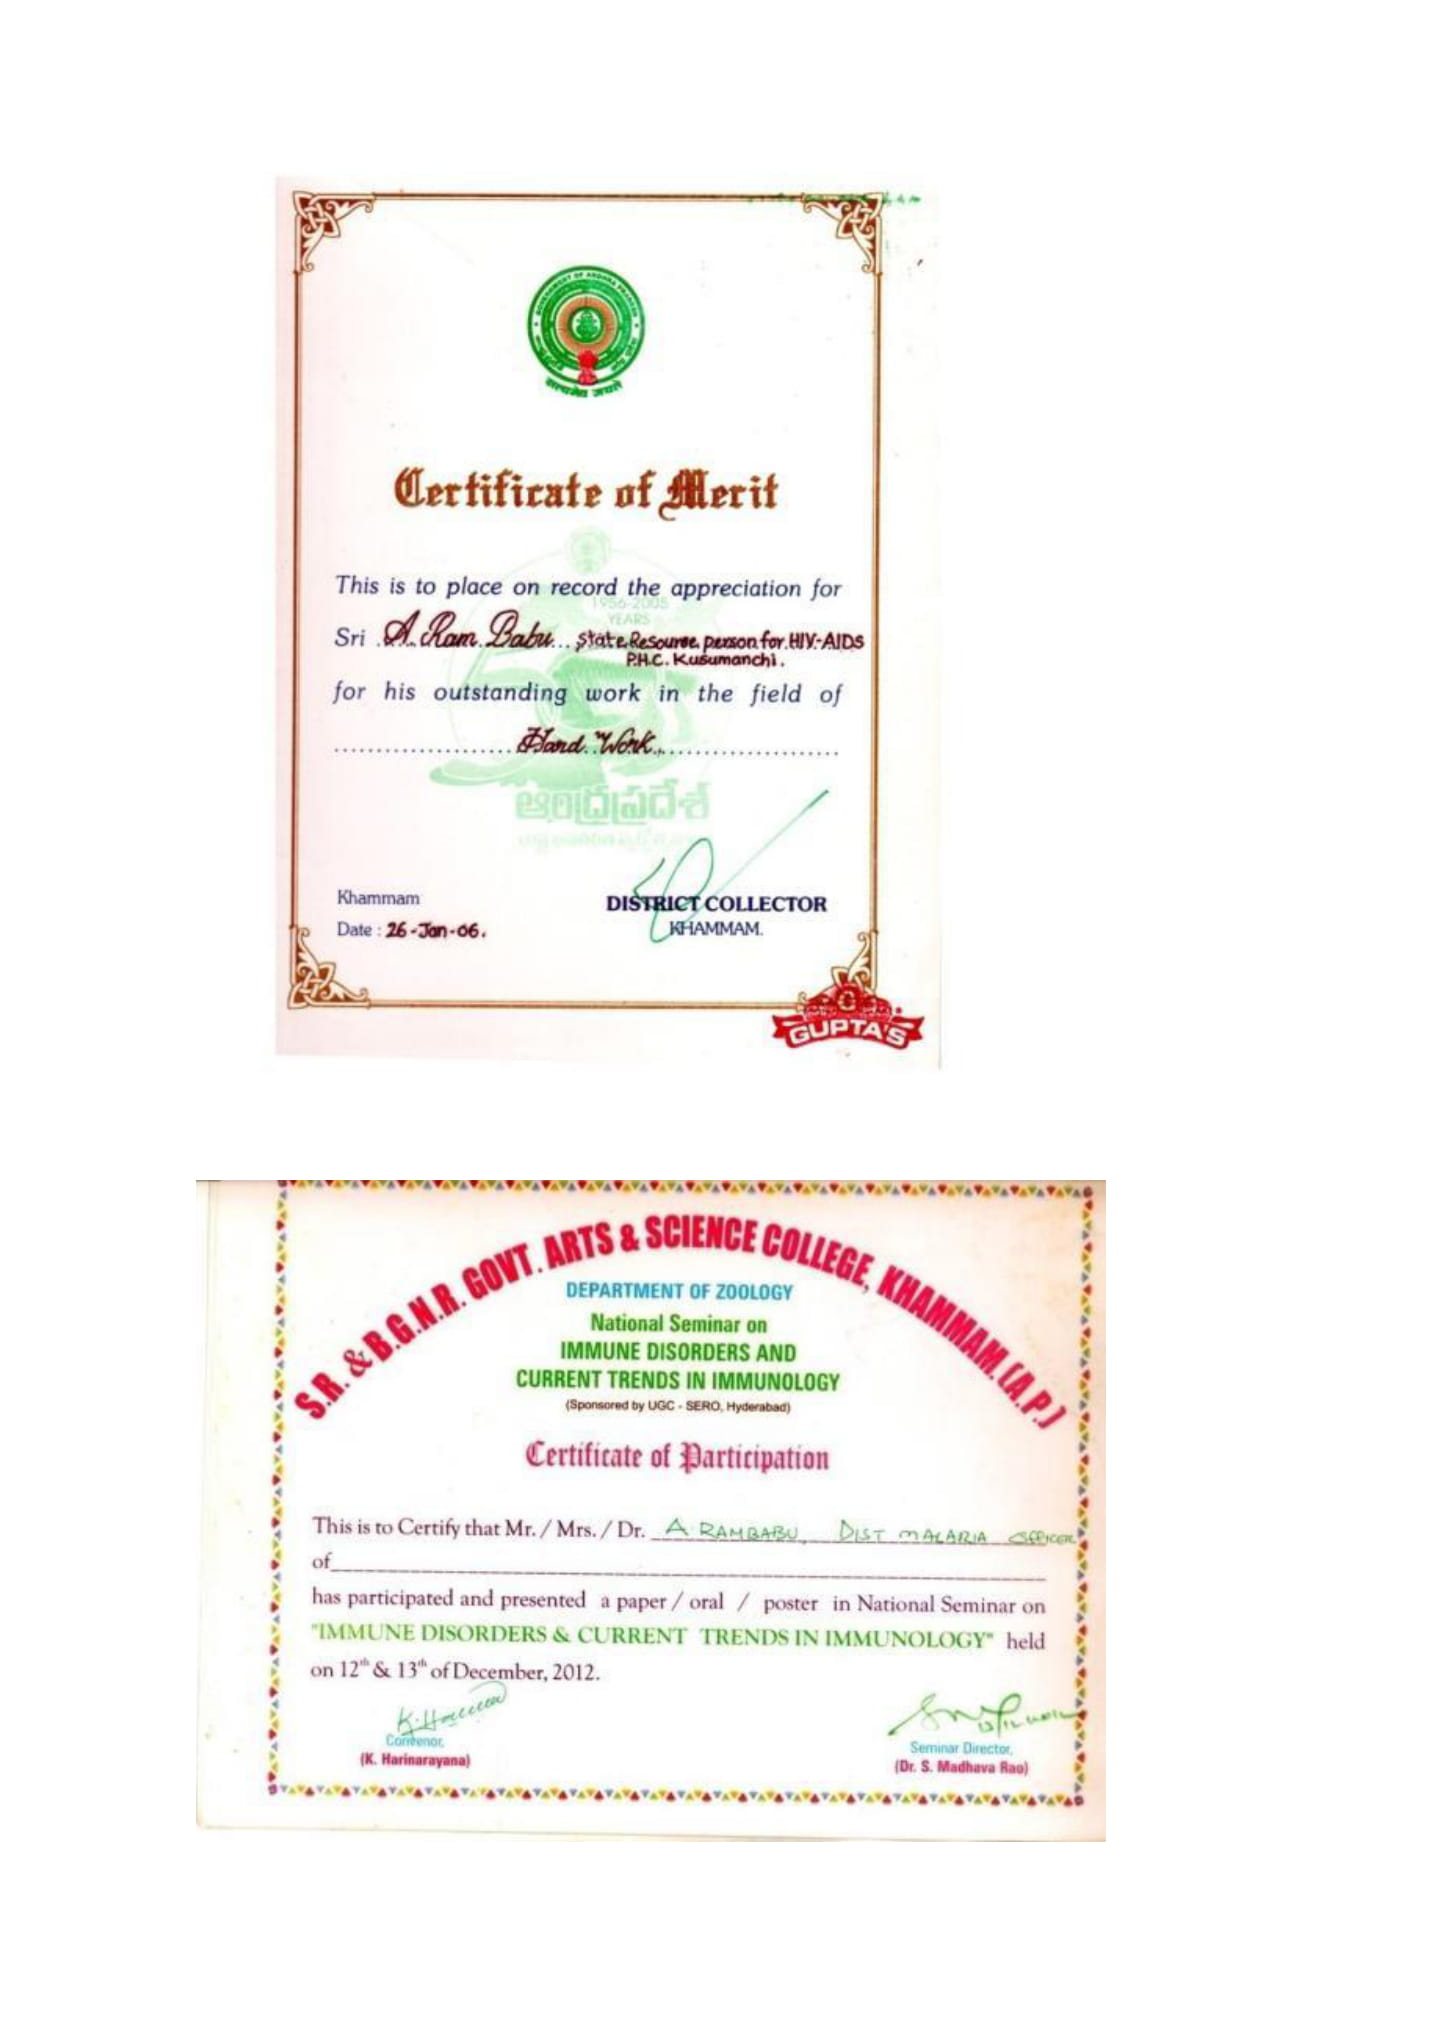 GOVERNMENT OF ANDHRA PRADESH
सत्यमेव जयते
Certificate of Merit
This is to place on record the appreciation for
1956-2005
YEARS
Sri A. Ram Babu State Resourse person for HIV-AIDS
P.H.C. Kusumanchi.
for his outstanding work in the field of
Hard Work
ఆంధ్రప్రదేశ్
Khammam
DISTRICT COLLECTOR
Date : 26-Jan-06.
KHAMMAM.
G
GUPTA'S
S.R. & B.G.N.R. GOVT. ARTS & SCIENCE COLLEGE, KHAMMAM. (A.P.)
DEPARTMENT OF ZOOLOGY
National Seminar on
IMMUNE DISORDERS AND
CURRENT TRENDS IN IMMUNOLOGY
(Sponsored by UGC - SERO, Hyderabad)
Certificate of Participation
This is to Certify that Mr. / Mrs. / Dr. A. RAMBABU, DIST MALARIA OFFICER
of
has participated and presented a paper / oral / poster in National Seminar on
"IMMUNE DISORDERS & CURRENT TRENDS IN IMMUNOLOGY" held
on 12th & 13th of December, 2012.
Convenor,
(K. Harinarayana)
Seminar Director,
(Dr. S. Madhava Rao)